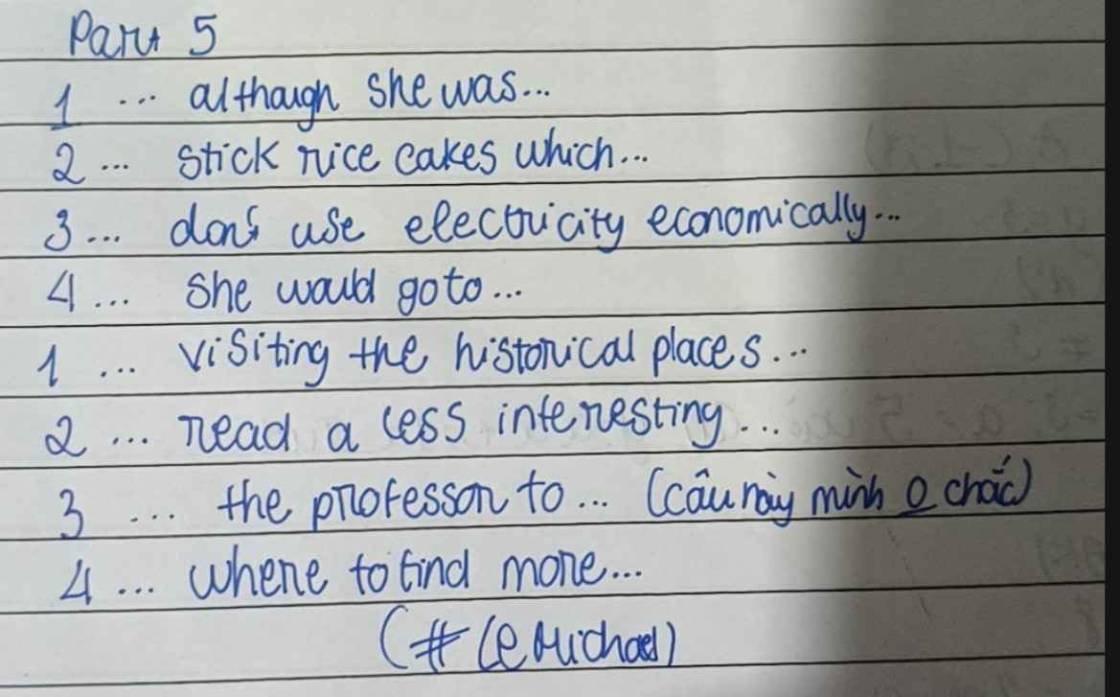 Part 5
1 ... although she was...
2 ... stick rice cakes which...
3 ... don't use electricity economically...
4 ... she would go to...
1 ... visiting the historical places...
2 ... read a less interesting...
3 ... the professor to... (câu này mình o chắc)
4 ... where to find more...
(# Le Michael)